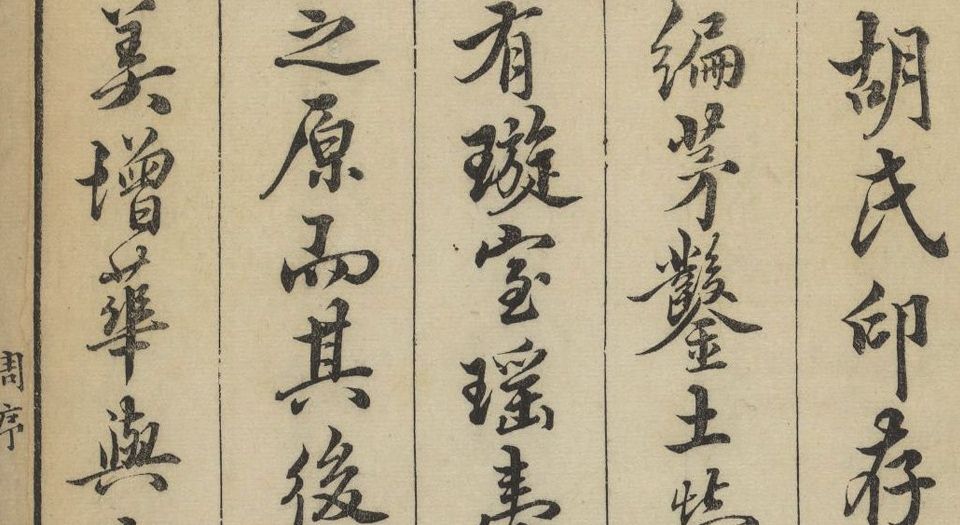 胡氏印存
編茅鑿土
有璇室瑤
之原而其後
美增華與
周序